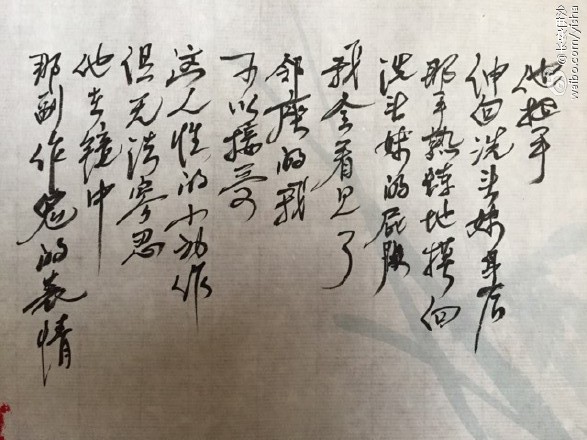 他把手
伸向洗头妹身后
那手熟练地摸向
洗头妹的屁股
我全看见了
邻座的我
可以接受
这人性的小动作
但无法容忍
他在镜中
那副作的表情
@长安伊沙
weibo.com/yisha